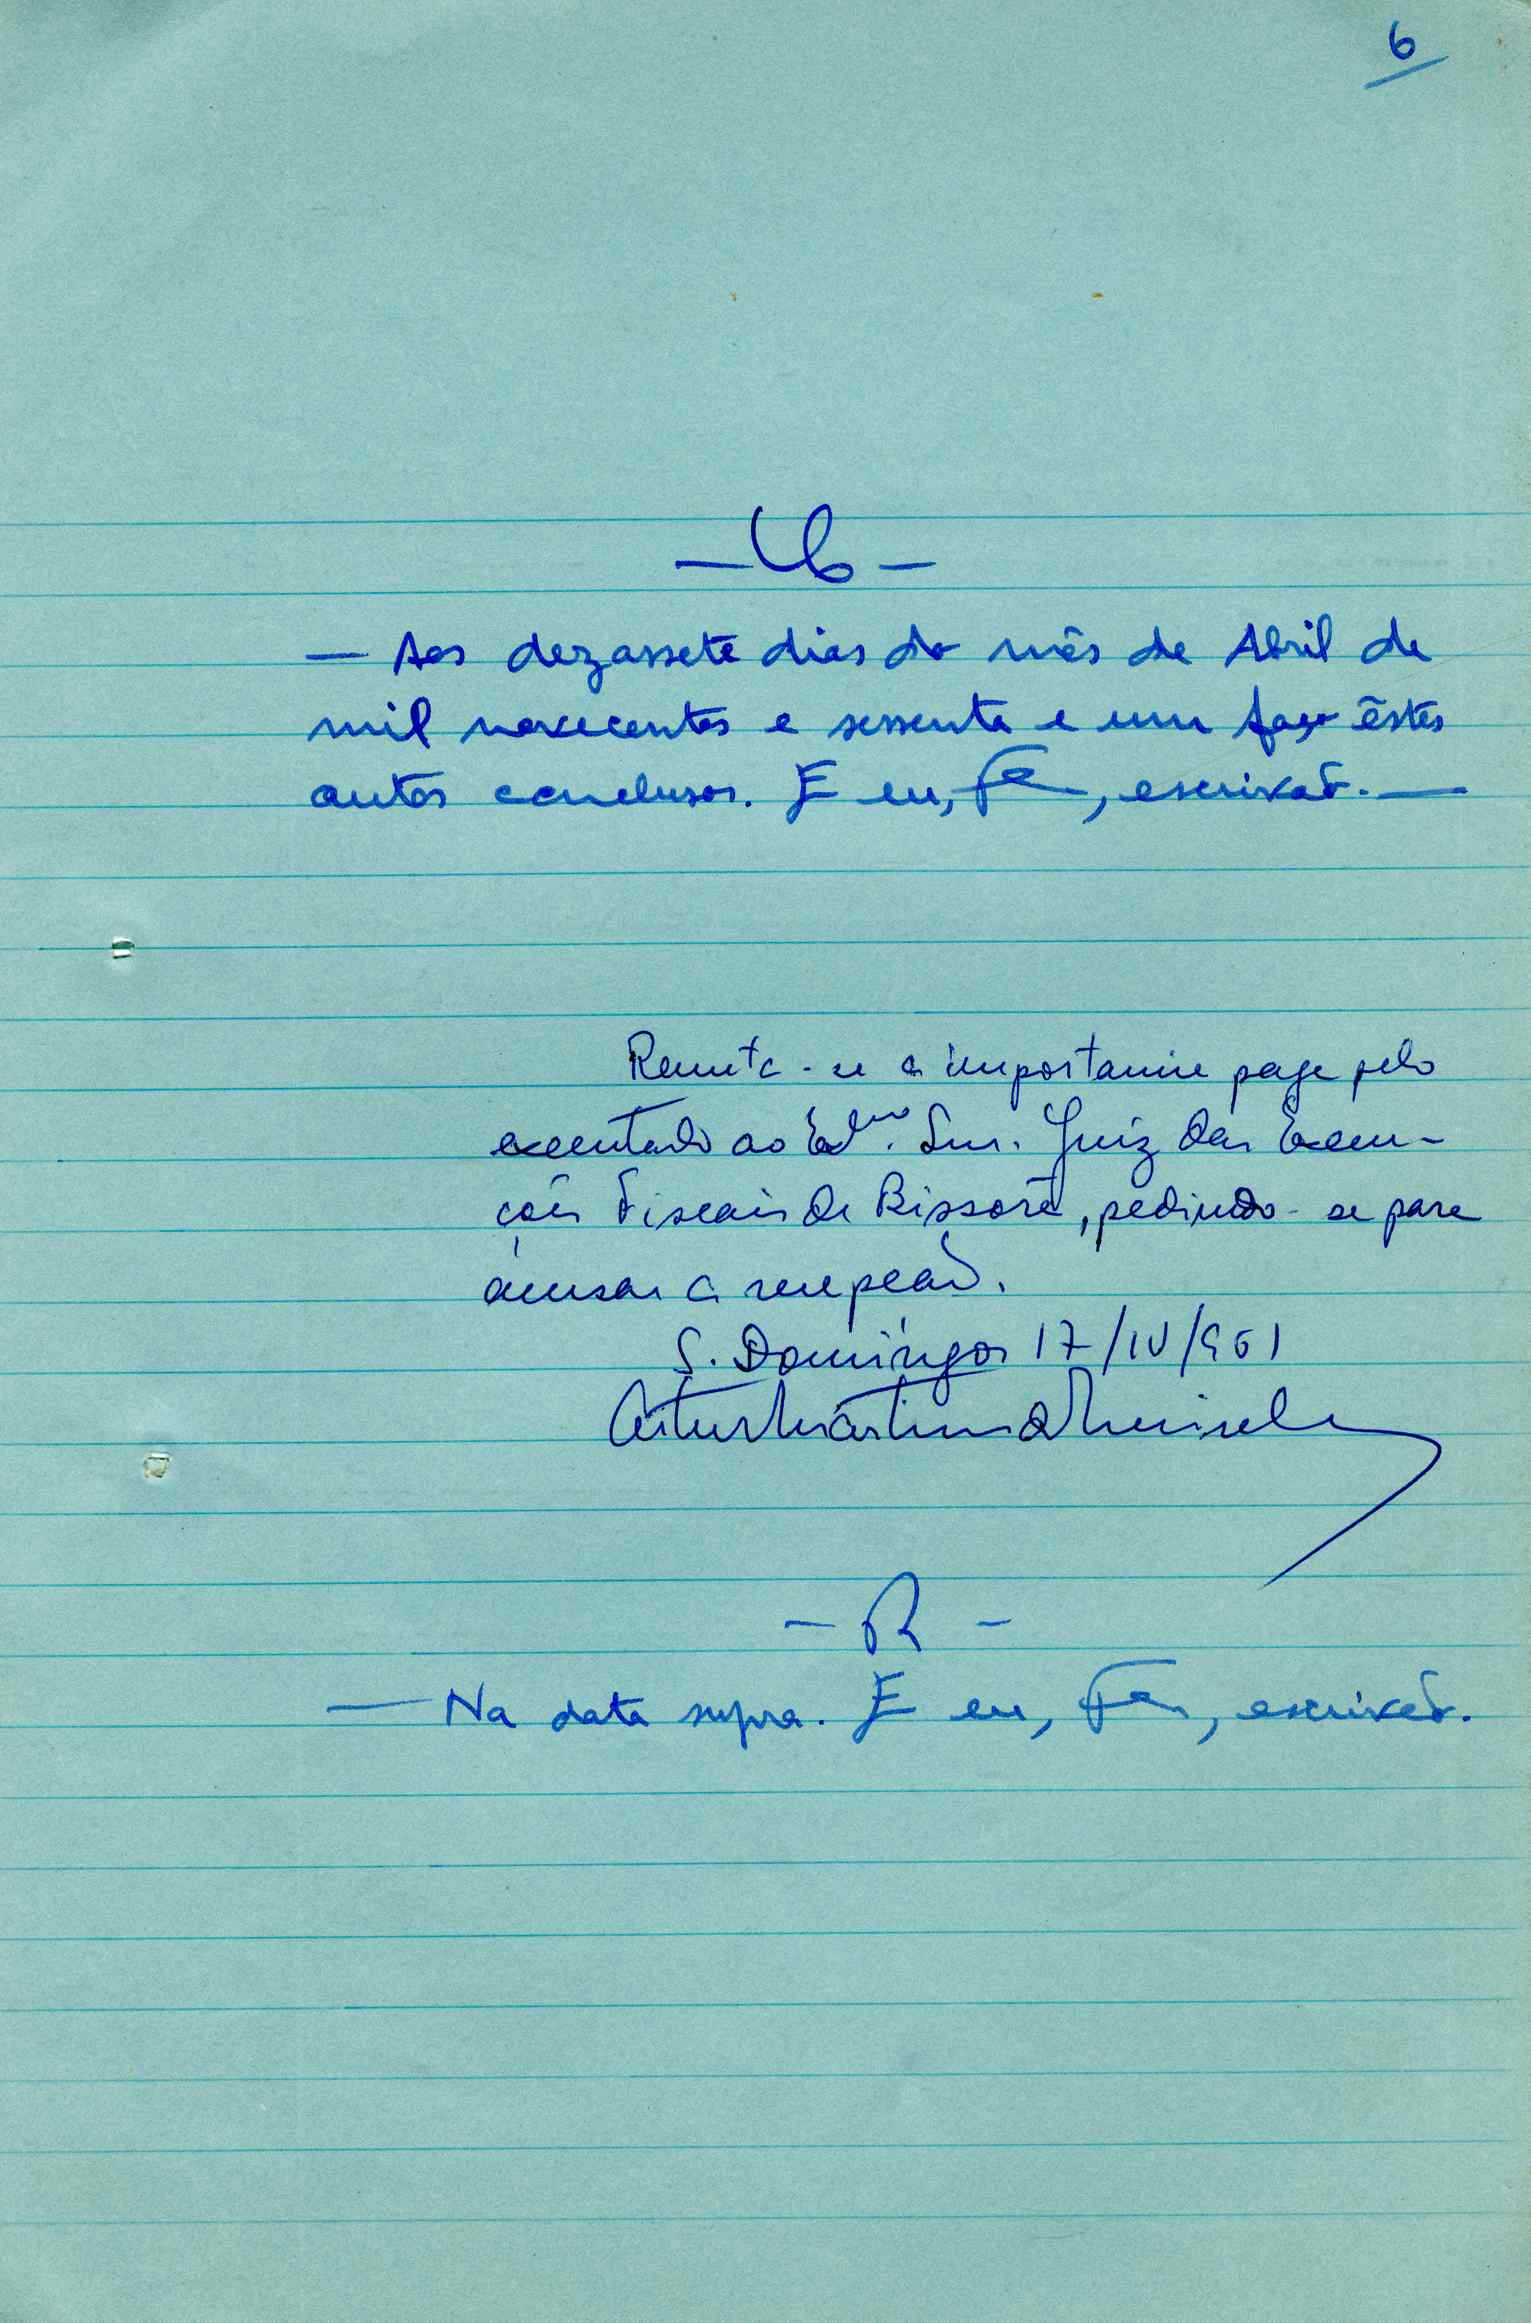 6
— Cls —
— Aos dezassete dias do mês de Abril de
mil novecentos e sessenta e um faço êstes
autos conclusos. E eu, , escrivão. —
Remeta-se a importancia paga pelo
executado ao Exmo. Snr. Juiz das Execu-
ções Fiscais de Bissorã, pedindo-se para
acusar a recepção.
S. Domingos 17/IV/961
Artur Martins de
— R —
— Na data supra. E eu, , escrivão.